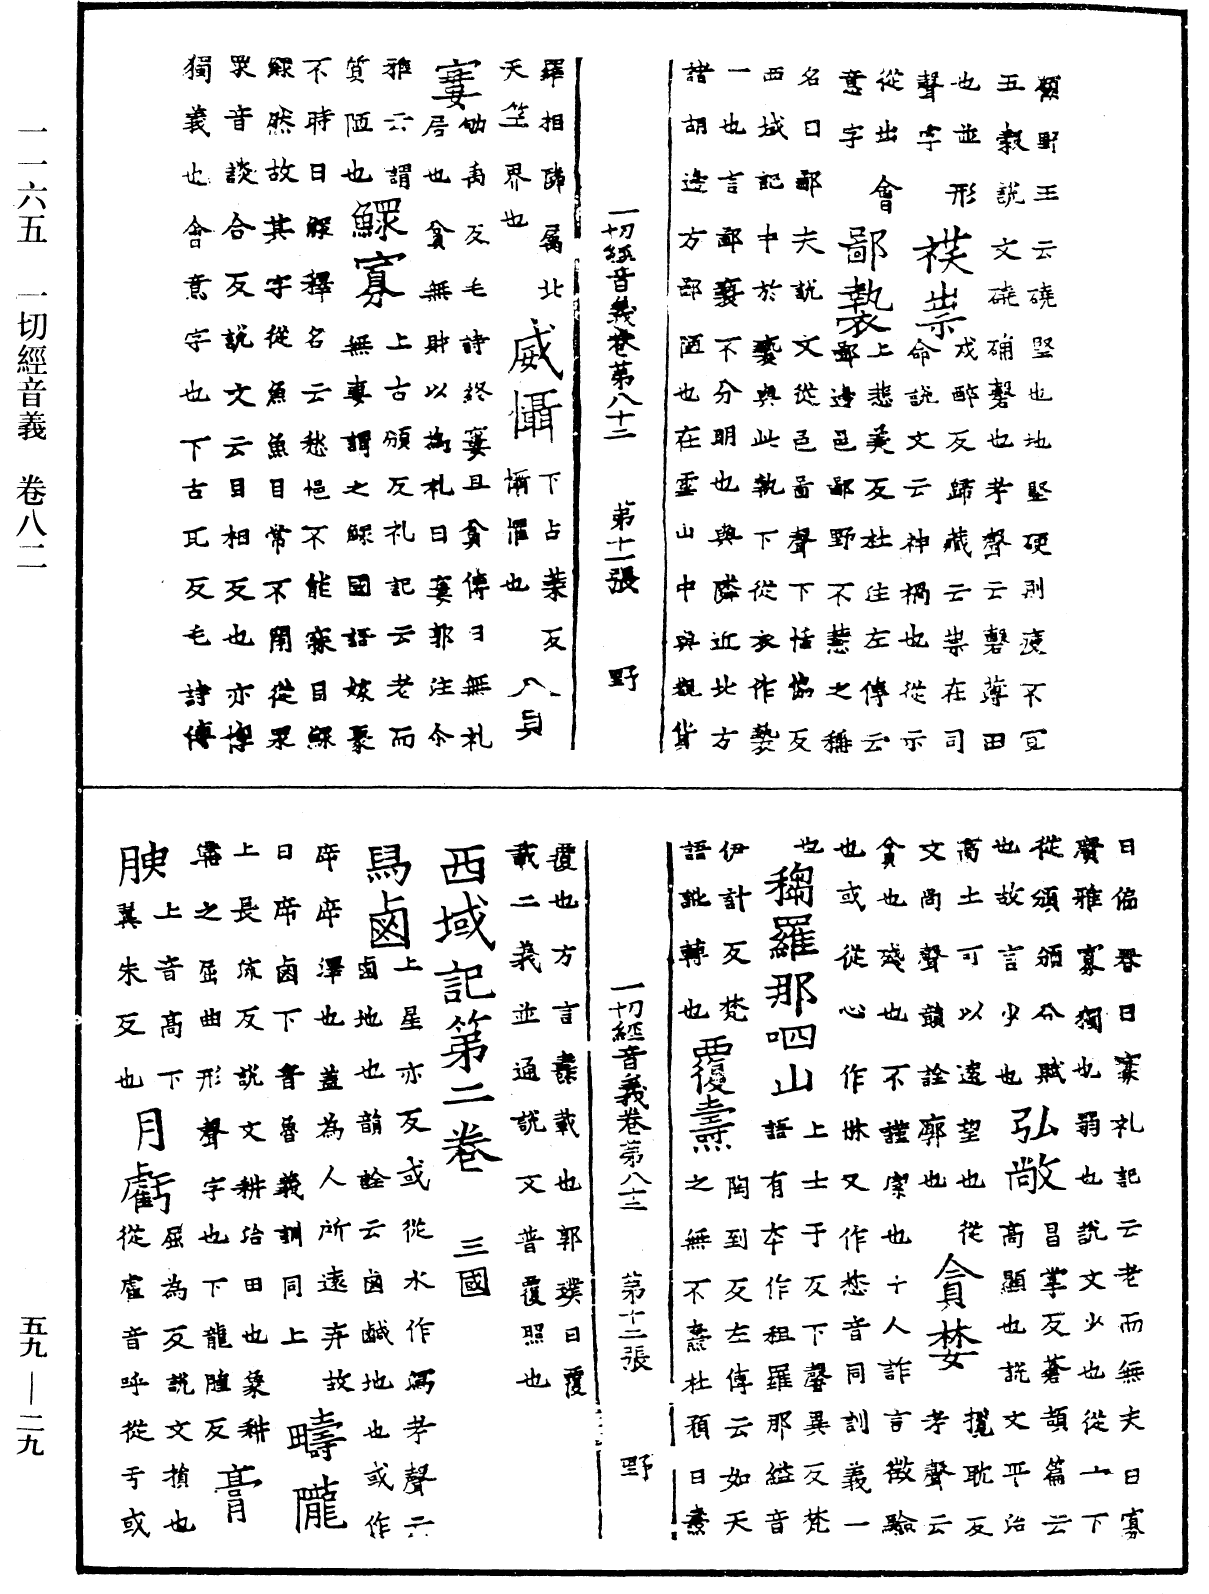 顧野王云磽堅也地堅硬則瘦不宜
五穀說文磽确磬也茅聲云磬薄田
也並形 祩祟 戍醉反歸藏云祟在司
聲字 命說文云神禍也從示
從出會 鄙褺 上悲美反杜注左傳云
意字 鄙邊邑鄙野不慧之稱
名曰鄙夫說文從邑啚聲下恬協反
西域記中於褻與此執下從衣作褺
一也言鄙褻不分明也與隣近北方
諸胡邊方鄙陋也在雪山中與覩貨
一切經音義卷第八十二 第十一張 野
羅相隣屬北 威懾 下占葉反
天竺界也 懾懼也 八員
寠 劬禹反毛詩終寠且貧傳曰無礼
居也貧無財以為礼曰寠郭注尒
雅云謂 鰥寡 上古頑反礼記云老而
質陋也 無妻謂之鰥國語嫁娶
不時曰鰥釋名云愁悒不能寐目鰥
鰥然故其字從魚魚目常不閉從眔
眔音談合反說文云目相及也亦惸
獨義也會意字也下古瓦反毛詩傳
日偏喪曰寡礼記云老而無夫曰寡
廣雅寡獨也弱也說文少也從宀下
從頒頒分賦 弘敞 昌掌反蒼頡篇云
也故言少也 高顯也說文平治
高土可以遠望也從 貪婪 攬耽反
文尚聲韻詮廓也 孝聲云
貪也殘也不謹潔也十人詐言徵驗
也或從心作惏又作惏音同訓義一
也 䅳羅那呬山 上士于反下馨異反梵
語有本作稚羅那縊音
伊計反梵 覆燾 陶到反左傳云如天
語訛轉也 之無不燾杜預曰燾
一切經音義卷第八十二 第十二張 野
覆也方言燾載也郭璞曰覆
載二義並通說文普覆照也
西域記第二卷 三國
舄鹵 上星亦反或從水作潟考聲云
鹵地也韻詮云鹵鹹地也或作
㡿㡿澤也蓋為人所遠弃故
曰㡿鹵下音魯義訓同上 疇隴
上長流反說文耕治田也象耕
溝之屈曲形聲字也下龍腫反 膏
腴 上音高下 月虧 屈為反說文損也
翼朱反也 從虗音呼從亏或